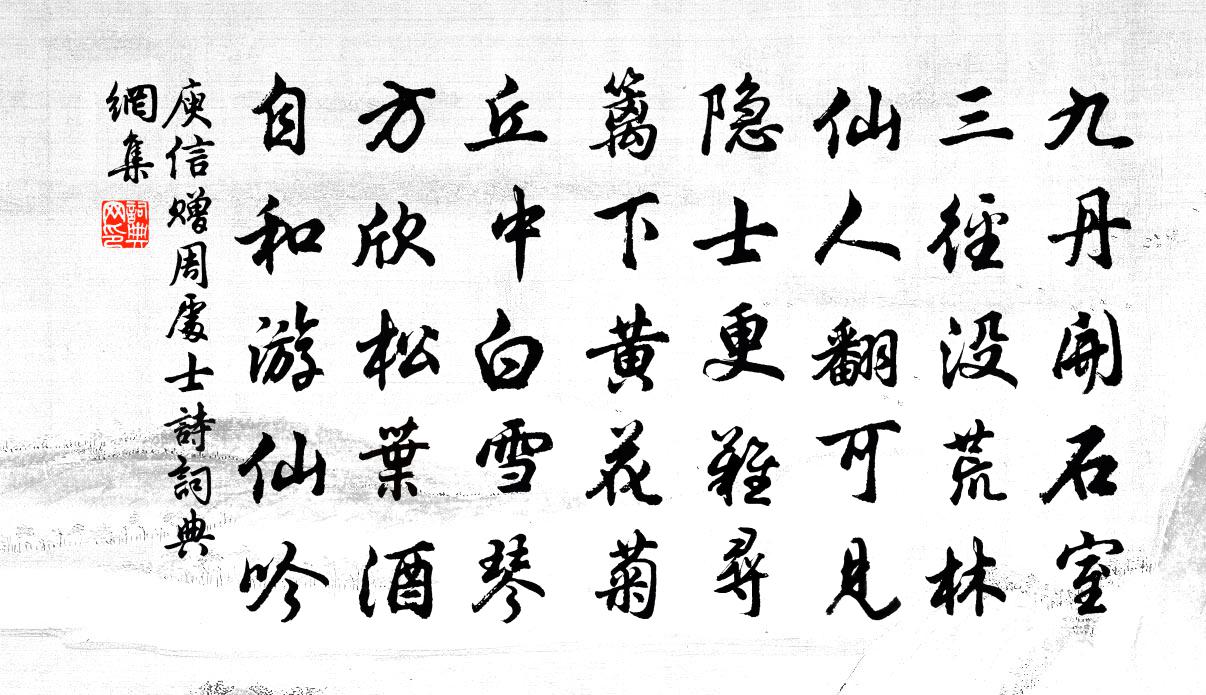 九丹開石室
三徑没荒林
仙人翻可見
隐士更難尋
籬下黄花菊
丘中白雪琴
方欣松葉酒
自和游仙吟
庾信贈周處士詩詞典
網集
詞典
网印